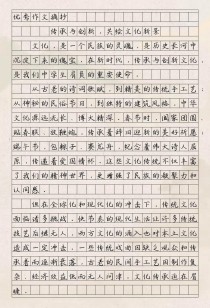 优秀作文摘抄
传承与创新，共绘文化新景
文化，是一个民族的灵魂，是历史长河中
沉淀下来的瑰宝。在新时代，传承与创新文化，
是我们中学生肩负的重要使命。
从古老的诗词歌赋，到精美的传统手工艺；
从神秘的民俗节日，到独特的建筑风格，中华
文化源远流长，博大精深。春节时，阖家团圆
贴春联、放鞭炮，传承着辞旧迎新的美好祈愿
端午节，包粽子、赛龙舟，纪念着伟大诗人屈
原，传递着爱国情怀。这些文化传统不仅丰富
了我们的精神世界，更增强了民族的凝聚力和
认同感。
但在全球化和现代化的冲击下，传统文化
面临诸多挑战。快节奏的现代生活让许多传统
技艺后继无人，西方文化的涌入也对本土文化
造成一定冲击。一些传统戏曲因缺乏观众和传
承者而逐渐衰落，古老的民间手工艺因制作复
杂、经济效益低而无人问津。文化传承迫在眉
睫。